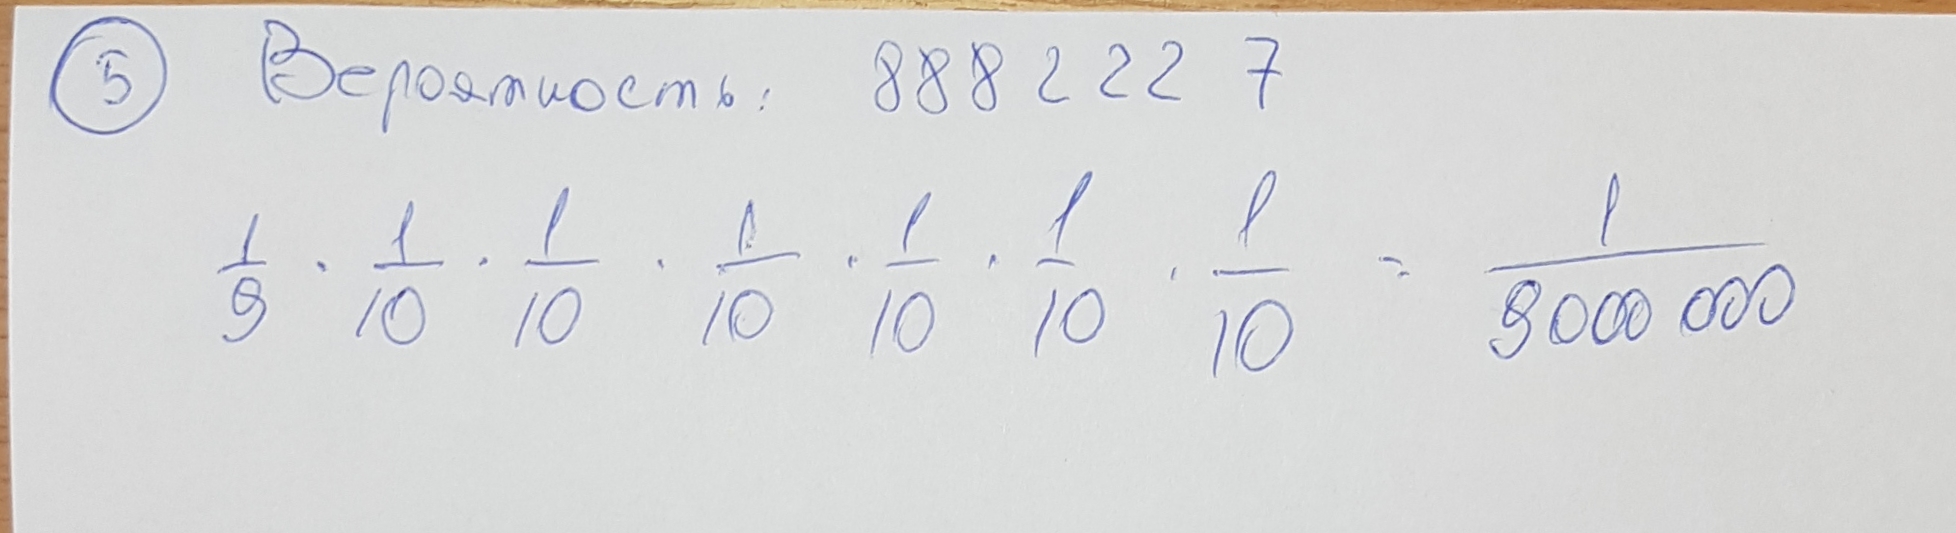 5 Вероятность: 888 222 7
1/9 · 1/10 · 1/10 · 1/10 · 1/10 · 1/10 · 1/10 = 1/9000 000